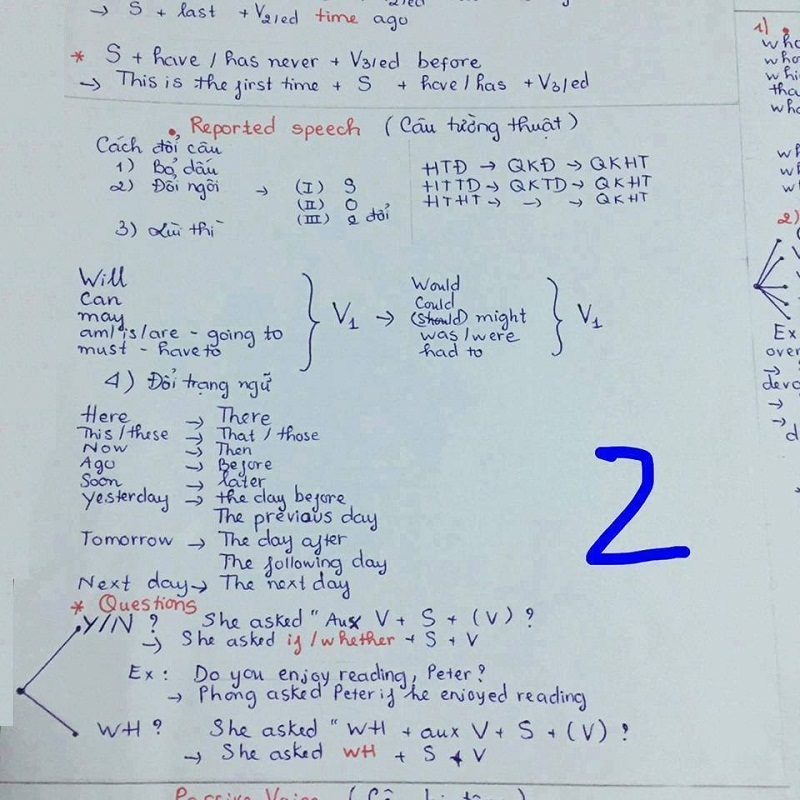 → S + last + V2/ed time ago
* S + have / has never + V3/ed before
→ This is the first time + S + have / has + V3/ed
• Reported speech (Câu tường thuật)
Cách đổi câu
1) Bỏ dấu
2) Đổi ngôi → (I) S
(II) O
(III) 2 đổi
3) Lùi thì
HTĐ → QKĐ → QKHT
HTTD → QKTD → QKHT
HTHT → → → QKHT
Will
Can
may
am/is/are - going to
must - have to
} V1 →
Would
Could
(should) might
was/were
had to
} V1
4) Đổi trạng ngữ
Here → There
This / these → That / those
Now → Then
Ago → Before
Soon → later
Yesterday → the day before
The previous day
Tomorrow → The day after
The following day
Next day → The next day
* Questions
Y/N ? She asked " Aux V + S + (V) ?
→ She asked if / whether + S + V
Ex : Do you enjoy reading, Peter ?
→ Phong asked Peter if he enjoyed reading
WH ? She asked " WH + aux V + S + (V) ?
→ She asked WH + S + V
Passive Voice
2
1)
2)
Ex
→
→
→